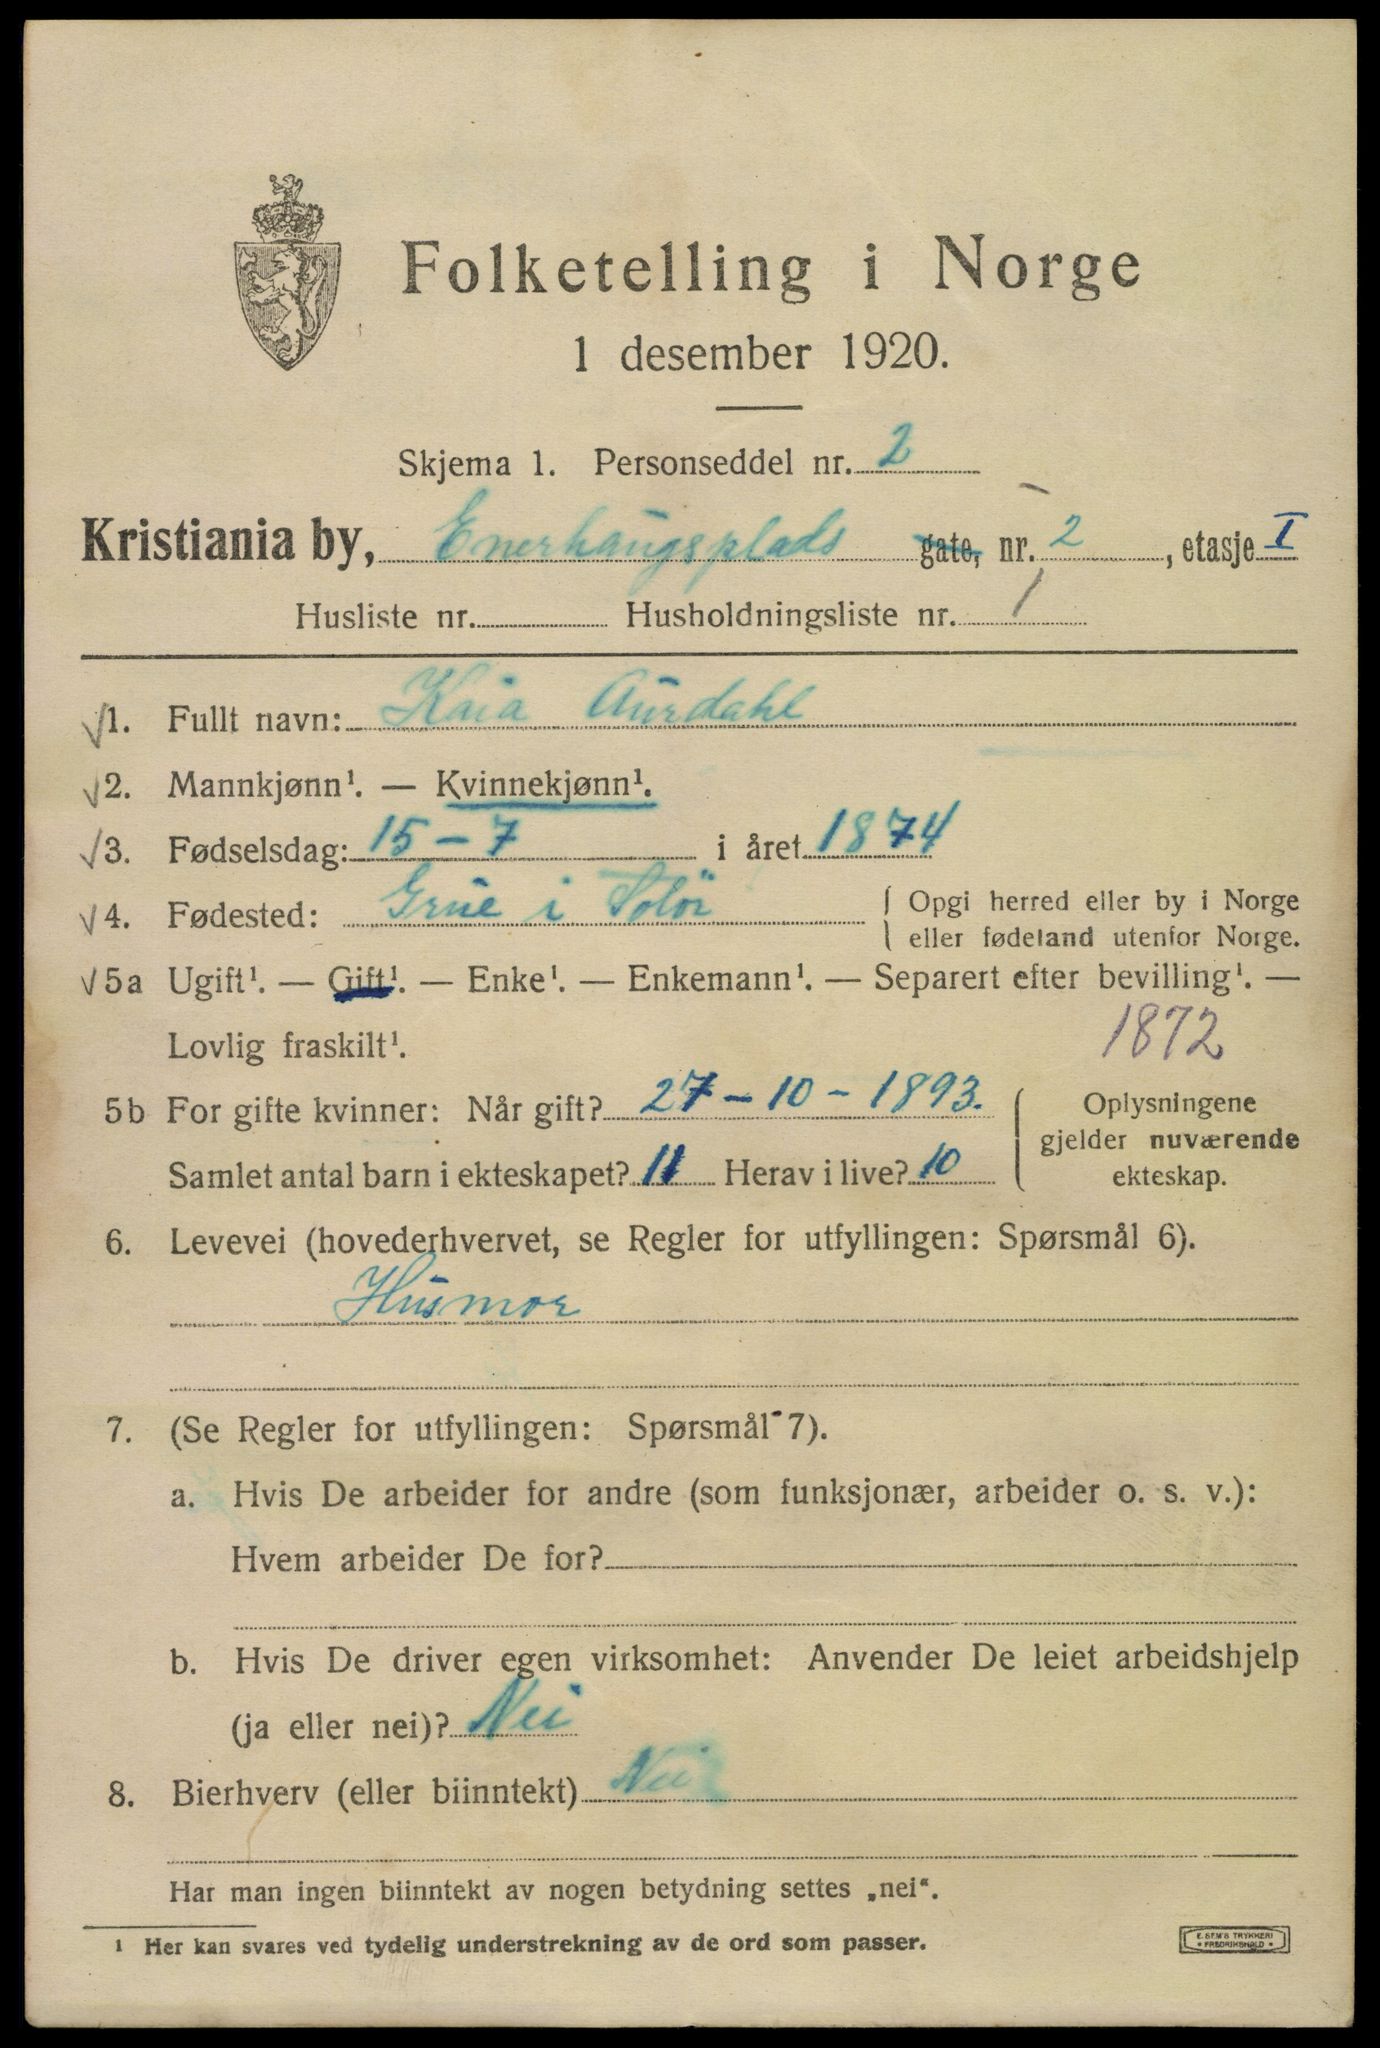 Folketelling i Norge
1 desember 1920.
Skjema 1. Personseddel nr. 2
Kristiania by, Enerhaugsplads gate, nr. 2, etasje I
Husliste nr. Husholdningsliste nr. 1
1. Fullt navn: Kaia Aurdahl
2. Mannkjønn¹. — Kvinnekjønn¹.
3. Fødselsdag: 15 - 7 i året 1874
4. Fødested: Grue i Solör { Opgi herred eller by i Norge
eller fødeland utenfor Norge.
5a Ugift¹. — Gift¹. — Enke¹. — Enkemann¹. — Separert efter bevilling¹. —
Lovlig fraskilt¹. 1872
5b For gifte kvinner: Når gift? 27 - 10 - 1893. { Oplysningene
gjelder nuværende
Samlet antal barn i ekteskapet? 11 Herav i live? 10 ekteskap.
6. Levevei (hovederhvervet, se Regler for utfyllingen: Spørsmål 6).
Husmor
7. (Se Regler for utfyllingen: Spørsmål 7).
a. Hvis De arbeider for andre (som funksjonær, arbeider o. s. v.):
Hvem arbeider De for?
b. Hvis De driver egen virksomhet: Anvender De leiet arbeidshjelp
(ja eller nei)? Nei
8. Bierhverv (eller biinntekt) Nei
Har man ingen biinntekt av nogen betydning settes „nei“.
¹ Her kan svares ved tydelig understrekning av de ord som passer.
E. SEM'S TRYKKERI
• FREDRIKSHALD •